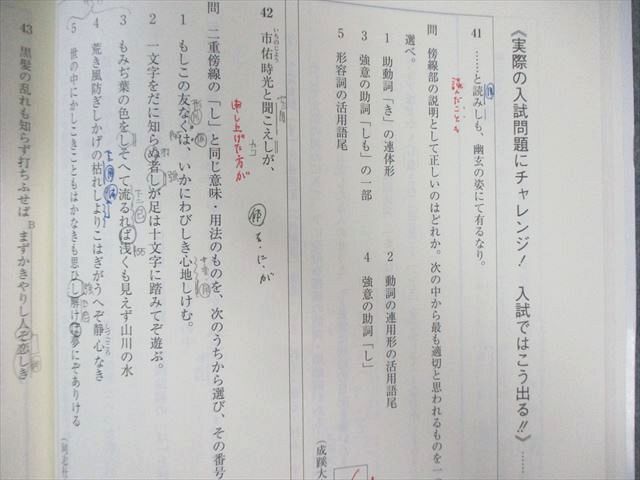 《実際の入試問題にチャレンジ！ 入試ではこう出る!!》……
41 ……と読みしも、幽玄の姿にて有るなり。
読んだことも
問 傍線部の説明として正しいのはどれか。次の中から最も適切と思われるものを一つ
選べ。
1 助動詞「き」の連体形
2 動詞の連用形の活用語尾
3 強意の助詞「しも」の一部
4 強意の助詞「し」
5 形容詞の活用語尾
(成蹊大
42 市佑時光と聞こえしが、
いちのじょう
申し上げた方が
を、に、が
問 二重傍線の「し」と同じ意味・用法のものを、次のうちから選び、その番号
1 もしこの友なくは、いかにわびしき心地しけむ。
2 一文字をだに知らぬ者しが足は十文字に踏みてぞ遊ぶ。
3 もみぢ葉の色をしそへて流るれば浅くも見えず山川の水
4 荒き風防ぎしかげの枯れしよりこはぎがうへぞ静心なき
しづこころ
5 世の中にかしこきこともはかなきも思ひし解けば夢にぞありける
43 黒髪の乱れも知らず打ちふせば まずかきやりし人ぞ恋しき
B